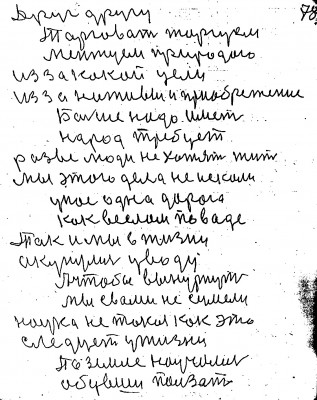 Друг другу
78
Тарговат таргуем
ментуем природого
из за какой цели
из за наживы и приобретение
Болше надо имет
народ требует
разве люди не хотят жит
мы этого дела не искали
у нас одна дорога
как веслом по ваде
Так и мы в жизни
окунули у воду
А чтобы вынурнут
мы свами не сумели
наука не такая как это
следует у жизни
По земле научили
обувши ползат